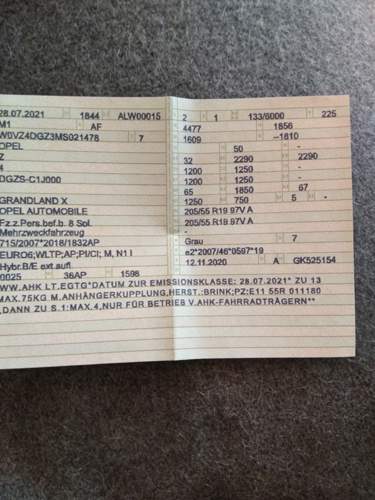 28.07.2021 1844 ALW00015 2 1 133/6000 225
M1 AF 4477 1856
W0VZ4DGZ3MS021478 7 1609 --1810
OPEL - 50 -
Z 32 2290 2290
4 1200 1250 -
DGZS-C1J000 1200 1250 -
65 1850 67
GRANDLAND X 1250 750 5 -
OPEL AUTOMOBILE 205/55 R19 97V A
Fz.z.Pers.bef.b. 8 Spl. 205/55 R19 97V A
Mehrzweckfahrzeug -
715/2007*2018/1832AP Grau 7
EURO6;WLTP;AP;PI/CI; M, N1 I e2*2007/46*0597*19
Hybr.B/E ext.aufl. 12.11.2020 A GK525154
0025 36AP 1598
WW.AHK LT.EGTG*DATUM ZUR EMISSIONSKLASSE: 28.07.2021* ZU 13
MAX.75KG M.ANHÄNGERKUPPLUNG,HERST.:BRINK;PZ:E11 55R 011180
,DANN ZU S.1:MAX.4,NUR FÜR BETRIEB V.AHK-FAHRRADTRÄGERN**